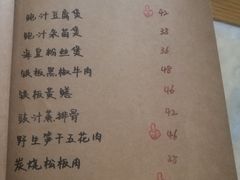 鲍汁豆腐煲 42
鲍汁杂菌煲 38
海皇粉丝煲 36
铁板黑椒牛肉 48
铁板黄鳝 46
豉汁蒸排骨 42
野生笋干五花肉 46
炭烧松板肉 35